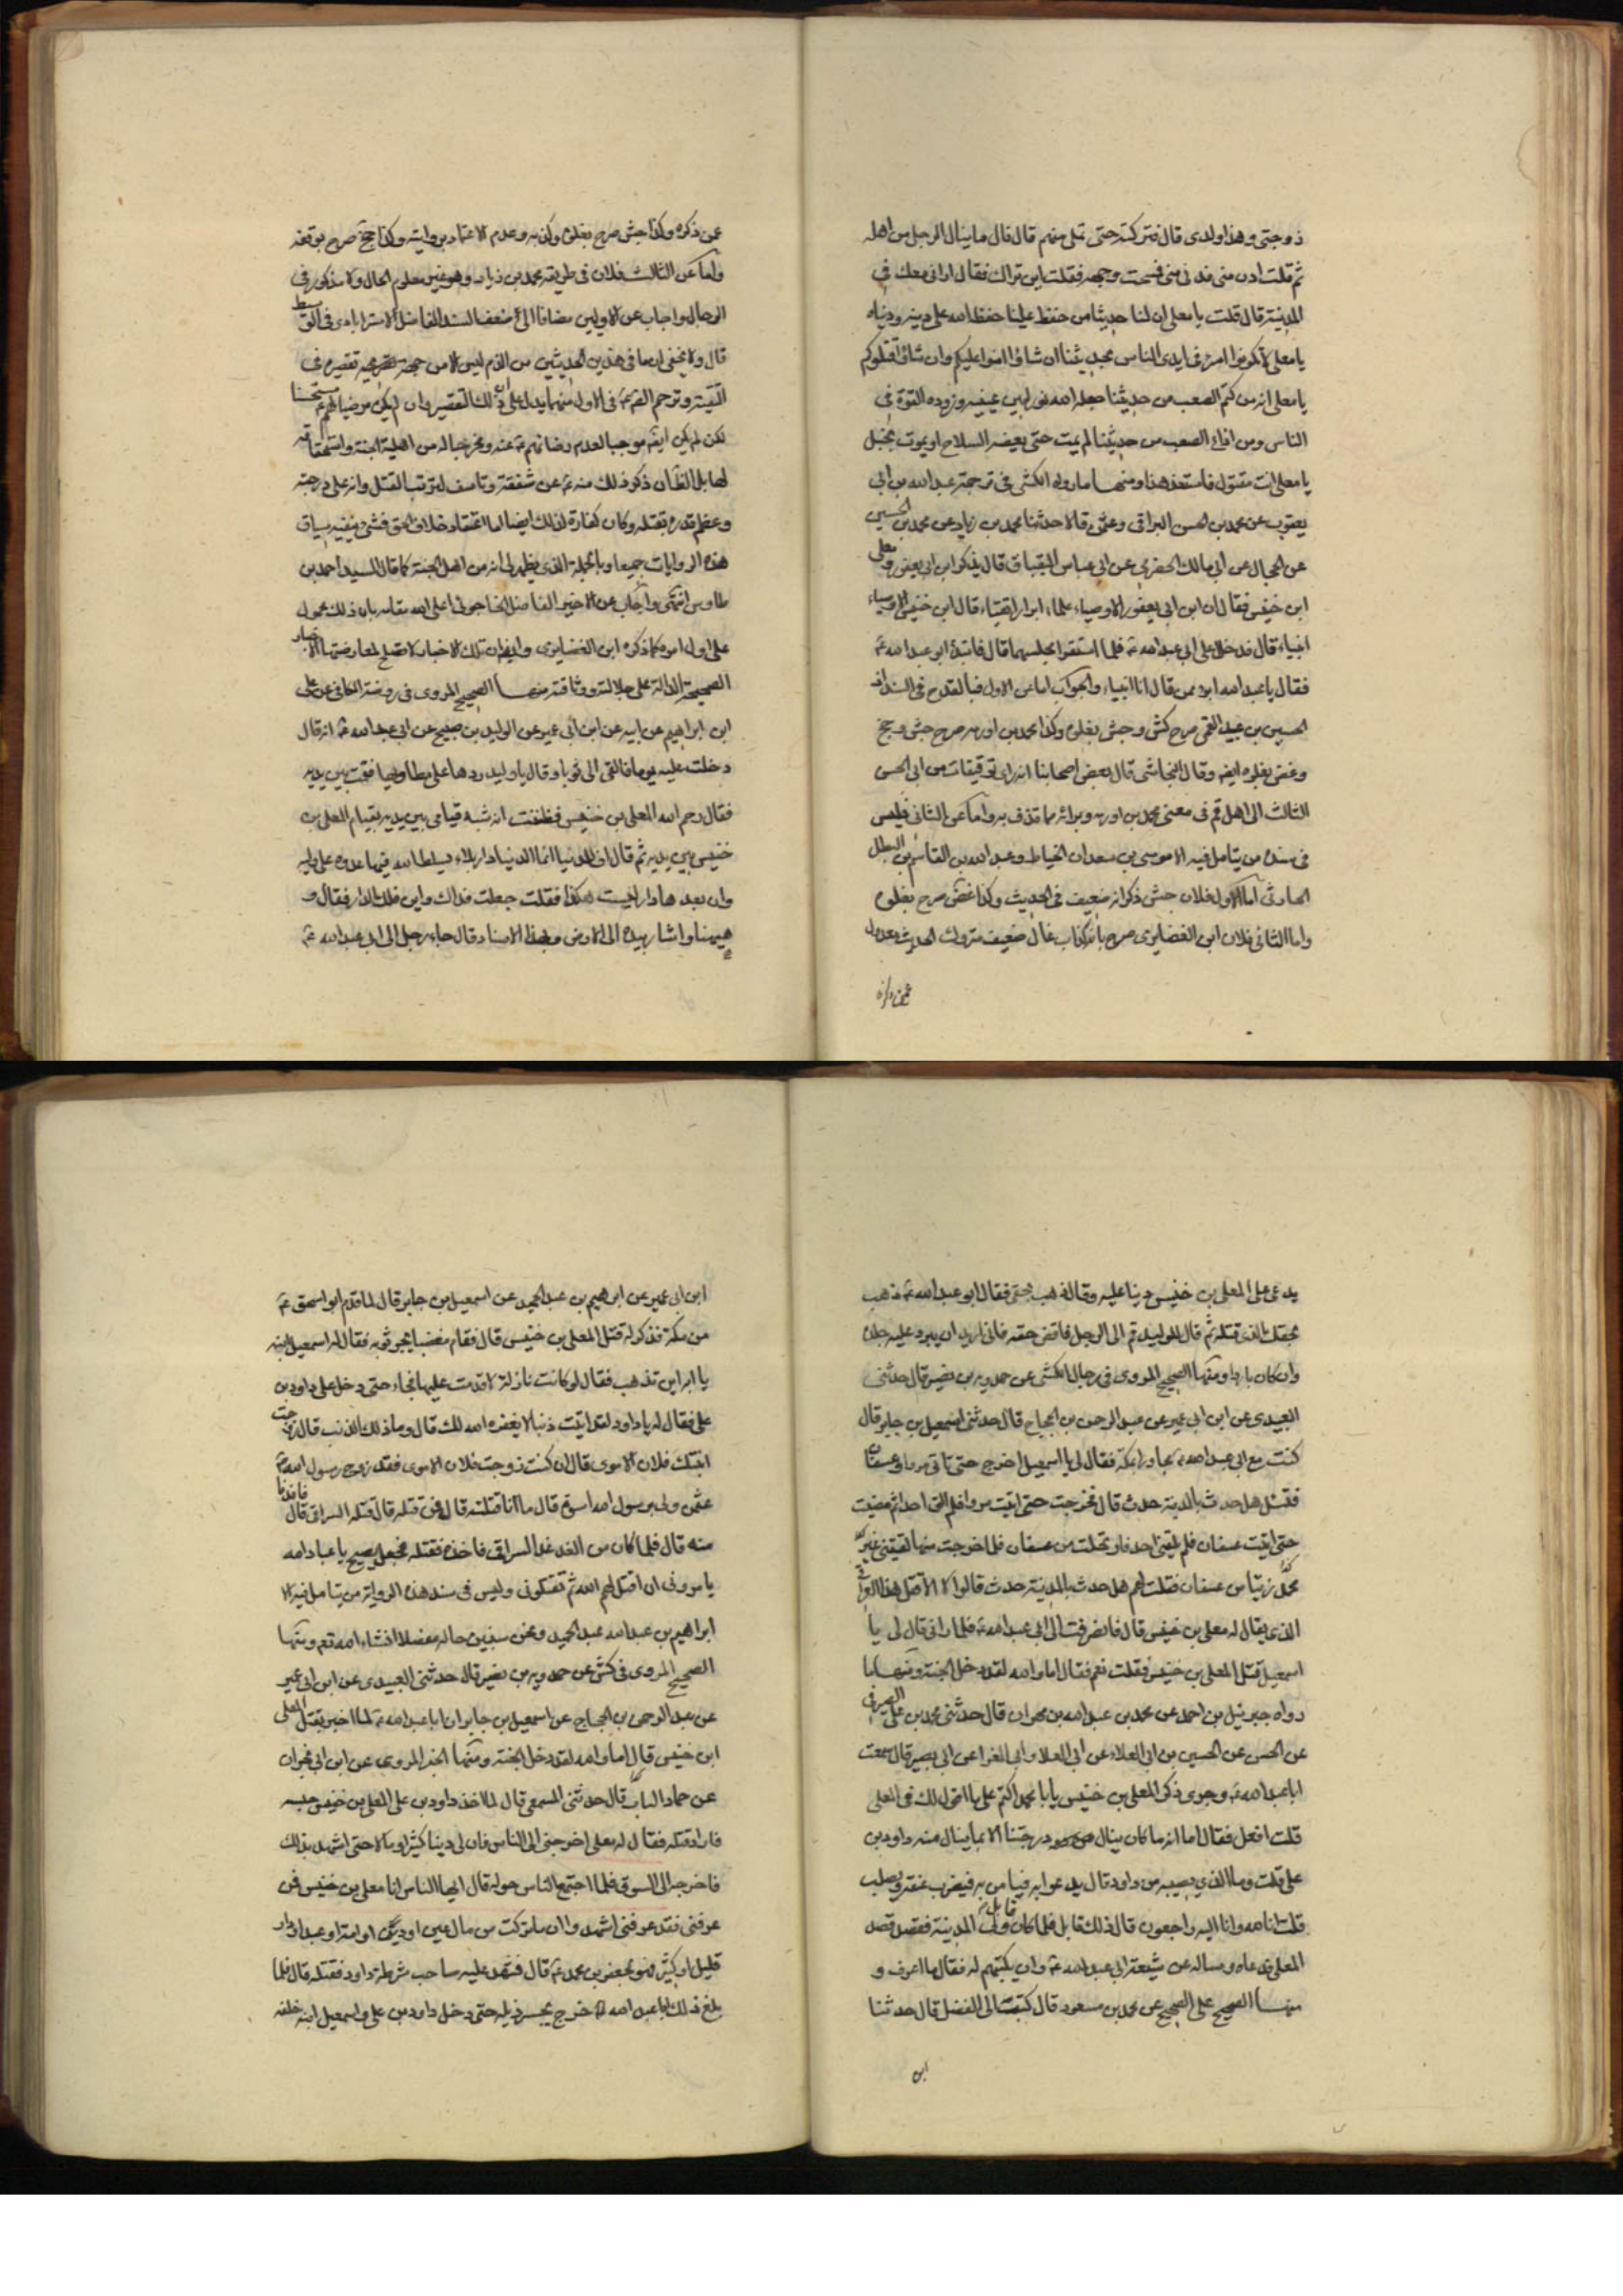 زوجتی وهذا ولدی قال فترکته حتی تملی منهم قال قال ما ینال الرجل من اهله
ثم قلت ادن منی فدنی منی فمسحت وجهه فقلت این تراک فقال ارانی معک فی
المدینة قال قلت یا معلی ان لنا حدیثا من حفظ علینا حفظ الله علی دینه ودنیاه
یا معلی لا تکونوا اسری فی ایدی الناس بحدیثنا ان شاؤا امنوا علیکم وان شاؤا قتلوکم
یا معلی انه من کتم الصعب من حدیثنا جعله الله نورا بین عینیه وزوده القوة فی
الناس ومن اذاع الصعب من حدیثنا لم یمت حتی یعضه السلاح او یموت بخبل
یا معلی انت مقتول فاستعد هذا ومنها ما رواه الکشی فی ترجمة عبد الله بن ابی
یعفور عن محمد بن الحسن البراقی وعثمن قالا حدثنا محمد بن زیاد عن محمد بن الحسین
عن الحجال عن ابی مالک الحضرمی عن ابی عباس البقباق قال تذکر ابن ابی یعفور ومعلی
ابن خنیس فقال ابن ابی یعفور الاوصیاء علماء ابرار اتقیاء قال ابن خنیس الاوصیاء
انبیاء قال فدخلا علی ابی عبد الله ع فلما استقر مجلسهما قال فابتدأ ابو عبد الله ع
فقال یا عبد الله ابرء ممن قال انا انبیاء والجواب اما عن الاول فبالقدح فی السند اذ
الحسین بن عبید القمی صرح کش وجش بغلوه وکذا محمد بن اورمه صرح جش وجخ
وغض بغلوه ایضه وقال النجاشی قال بعض اصحابنا انه رای توقیعات من ابی الحسن
الثالث الی اهل قم فی معنی محمد بن اورمه وبرائته مما قذف به واما عن الثانی فلیس
فی سنده من یتامل فیه الا موسی بن سعدان الخیاط وعبد الله بن القاسم بن البطل
الحارثی اما الاول فلان جش ذکر انه ضعیف فی الحدیث وکذا غض صرح بغلوه
واما الثانی فلان ابن الغضایری صرح بانه کذاب غال ضعیف متروک الحدیث معدول
عن ذکره وکذا جش صرح بغلوه وکذبه وعدم الاعتماد بروایته وکذا جخ صرح بوقفه
واما عن الثالث فلان فی طریقه محمد بن زیاد وهو غیر معلوم الحال ولا مذکور فی
الرجال واجاب عن الاولین مضافا الی ضعف السند الفاضل الاسترابادی فی الوسیط
قال ولا یخفی ان ما فی هذین الحدیثین من الذم لیس الا من جهة تقصیره فی
التقیة وترحم الصادق ع فی الاول منهما یدل علی ان ذلک التقصیر وان لم یکن مرضیا لهم مستحسنا
لکن لم یکن ایضه موجبا لعدم رضائهم ع عنه ومخرجا له من اهلیة الجنة واستحقاقه
لها بل الظان ذکر ذلک منه ع عن شفقة وتاسف لترتب القتل وانه علی درجته
وعظم قدره بقتله وکان کفارة لذلک ایضا اما اعتقاد خلاف الحق فشیء ینفیه سیاق
هذه الروایات جمیعا وبالجملة الذی یظهر لی انه من اهل الجنة کما قال السید احمد بن
طاوس انتهی واجاب عن الاخیر الفاضل الخاجوئی اعلی الله مقامه بان ذلک محمول
علی اول امره کما ذکره ابن الغضایری وایضا ان تلک الاخبار لا تصلح لمعارضتها الاخبار
الصحیحة الدالة علی جلالته ووثاقته منها الصحیح المروی فی روضة الکافی عن علی
ابن ابراهیم عن ابیه عن ابن ابی عمیر عن الولید بن صبیح عن ابی عبد الله ع انه قال
دخلت علیه یوما فالقی الی ثیابا وقال یا ولید ردها علی مطاویها فقمت بین یدیه
فقال رحم الله المعلی بن خنیس فظننت انه شبه قیامی بین یدیه بقیام المعلی بن
خنیس بین یدیه ثم قال اف للدنیا انما الدنیا دار بلاء یسلط الله فیها عدوه علی ولیه
وان بعدها دارا لیست هکذا فقلت جعلت فداک واین تلک الدار فقال
ههنا واشار بیده الی الارض وبهذا الاسناد قال جاء رجل الی ابی عبد الله ع
یدعی علی المعلی بن خنیس دینا علیه وقال ذهب بحقی فقال ابو عبد الله ع ذهب
بحقک الذی قتله ثم قال للولید قم الی الرجل فاقض حقه فانی ارید ان یبرد علیه جلده
وان کان باردا ومنها الصحیح المروی فی رجال الکشی عن حمدویه بن نصیر قال حدثنی
العبیدی عن ابن ابی عمیر عن عبد الرحمن بن الحجاج قال حدثنی اسمعیل بن جابر قال
کنت مع ابی عبد الله ع مجاورا بمکة فقال لی یا اسمعیل اخرج حتی تاتی مرا وعسفان
فتسئل هل حدث بالمدینة حدث قال فخرجت حتی اتیت مرا فلم الق احدا ثم مضیت
حتی اتیت عسفان فلم یلقنی احد فارتحلت من عسفان فلما خرجت منها لقیتنی عیر
تحمل زیتا من عسفان فقلت لهم هل حدث بالمدینة حدث قالوا لا الا قتل هذا العراقی
الذی یقال له معلی بن خنیس قال فانصرفت الی ابی عبد الله ع فلما رانی قال لی یا
اسمعیل قتل المعلی بن خنیس فقلت نعم فقال اما والله لقد دخل الجنة ومنها ما
رواه جبرئیل بن احمد عن محمد بن عبد الله بن مهران قال حدثنی محمد بن علی الصیرفی
عن الحسن عن الحسین بن ابی العلاء عن ابی العلا وابی المغرا عن ابی بصیر قال سمعت
ابا عبد الله ع وجری ذکر المعلی بن خنیس یا ابا محمد اکتم علی ما اقول لک فی المعلی
قلت افعل فقال اما انه ما کان ینال درجتنا الا بما ینال منه داود بن
علی قلت وما الذی یصیبه من داود قال یدعو به فیامر به فیضرب عنقه ویصلب
قلت انا لله وانا الیه راجعون قال ذلک قابل فلما کان قابل ولی المدینة فقصد قصد
المعلی فدعاه وساله عن شیعة ابی عبد الله ع وان یکتبهم له فقال ما اعرف و
منها الصحیح علی الصحیح عن محمد بن مسعود قال کتبت الی الفضل قال حدثنا
ابن
ابن ابی عمیر عن ابرهیم بن عبد الحمید عن اسمعیل بن جابر قال لما قدم ابو اسحق ع
من مکة فذکر له قتل المعلی بن خنیس قال فقام مغضبا یجر ثوبه فقال له اسمعیل ابنه
یا ابه این تذهب فقال لو کانت نازلة لاقدمت علیها فجاء حتی دخل علی داود بن
علی فقال له یا داود لقد اتیت ذنبا لا یغفره الله لک قال وما ذلک الذنب قال زوجت
ابنتک فلان الاموی قال ان کنت زوجت فلان الاموی فقد زوج رسول الله ص
عثمن ولی برسول الله اسوة قال ما انا قتلته قال فمن قتله قال قتله السرافی قال فاقدنا
منه قال فلما کان من الغد غدا السرافی فاخذه فقتله فجعل یصیح یا عباد الله
یامرونی ان اقتل لهم الله ثم تقتلونی ولیس فی سند هذه الروایة من یتامل فیه الا
ابراهیم بن عبد الله عبد الحمید ونحن سنبین حاله مفصلا انشاء الله تعم ومنها
الصحیح المروی فی کش عن حمدویه بن نصیر قال حدثنی العبیدی عن ابن ابی عمیر
عن عبد الرحمن بن الحجاج عن اسمعیل بن جابر ان ابا عبد الله ع لما اخبر بقتل المعلی
ابن خنیس قال اما والله لقد دخل الجنة ومنها الخبر المروی عن ابن ابی نجران
عن حماد الناب قال حدثنی المسمعی قال لما اخذ داود بن علی المعلی بن خنیس حبسه
فاراد قتله فقال له معلی اخرجنی الی الناس فان لی دینا کثیرا ومالا حتی اشهد بذلک
فاخرجه الی السوق فلما اجتمع الناس حوله قال ایها الناس انا معلی بن خنیس فمن
عرفنی فقد عرفنی اشهدوا ان ما ترکت من مال عین او دین او امة او عبد او دار
قلیل او کثیر فهو لجعفر بن محمد ع قال فشد علیه صاحب شرطة داود فقتله قال فلما
بلغ ذلک ابا عبد الله ع خرج یجر ذیله حتی دخل داود بن علی واسمعیل ابنه خلفه